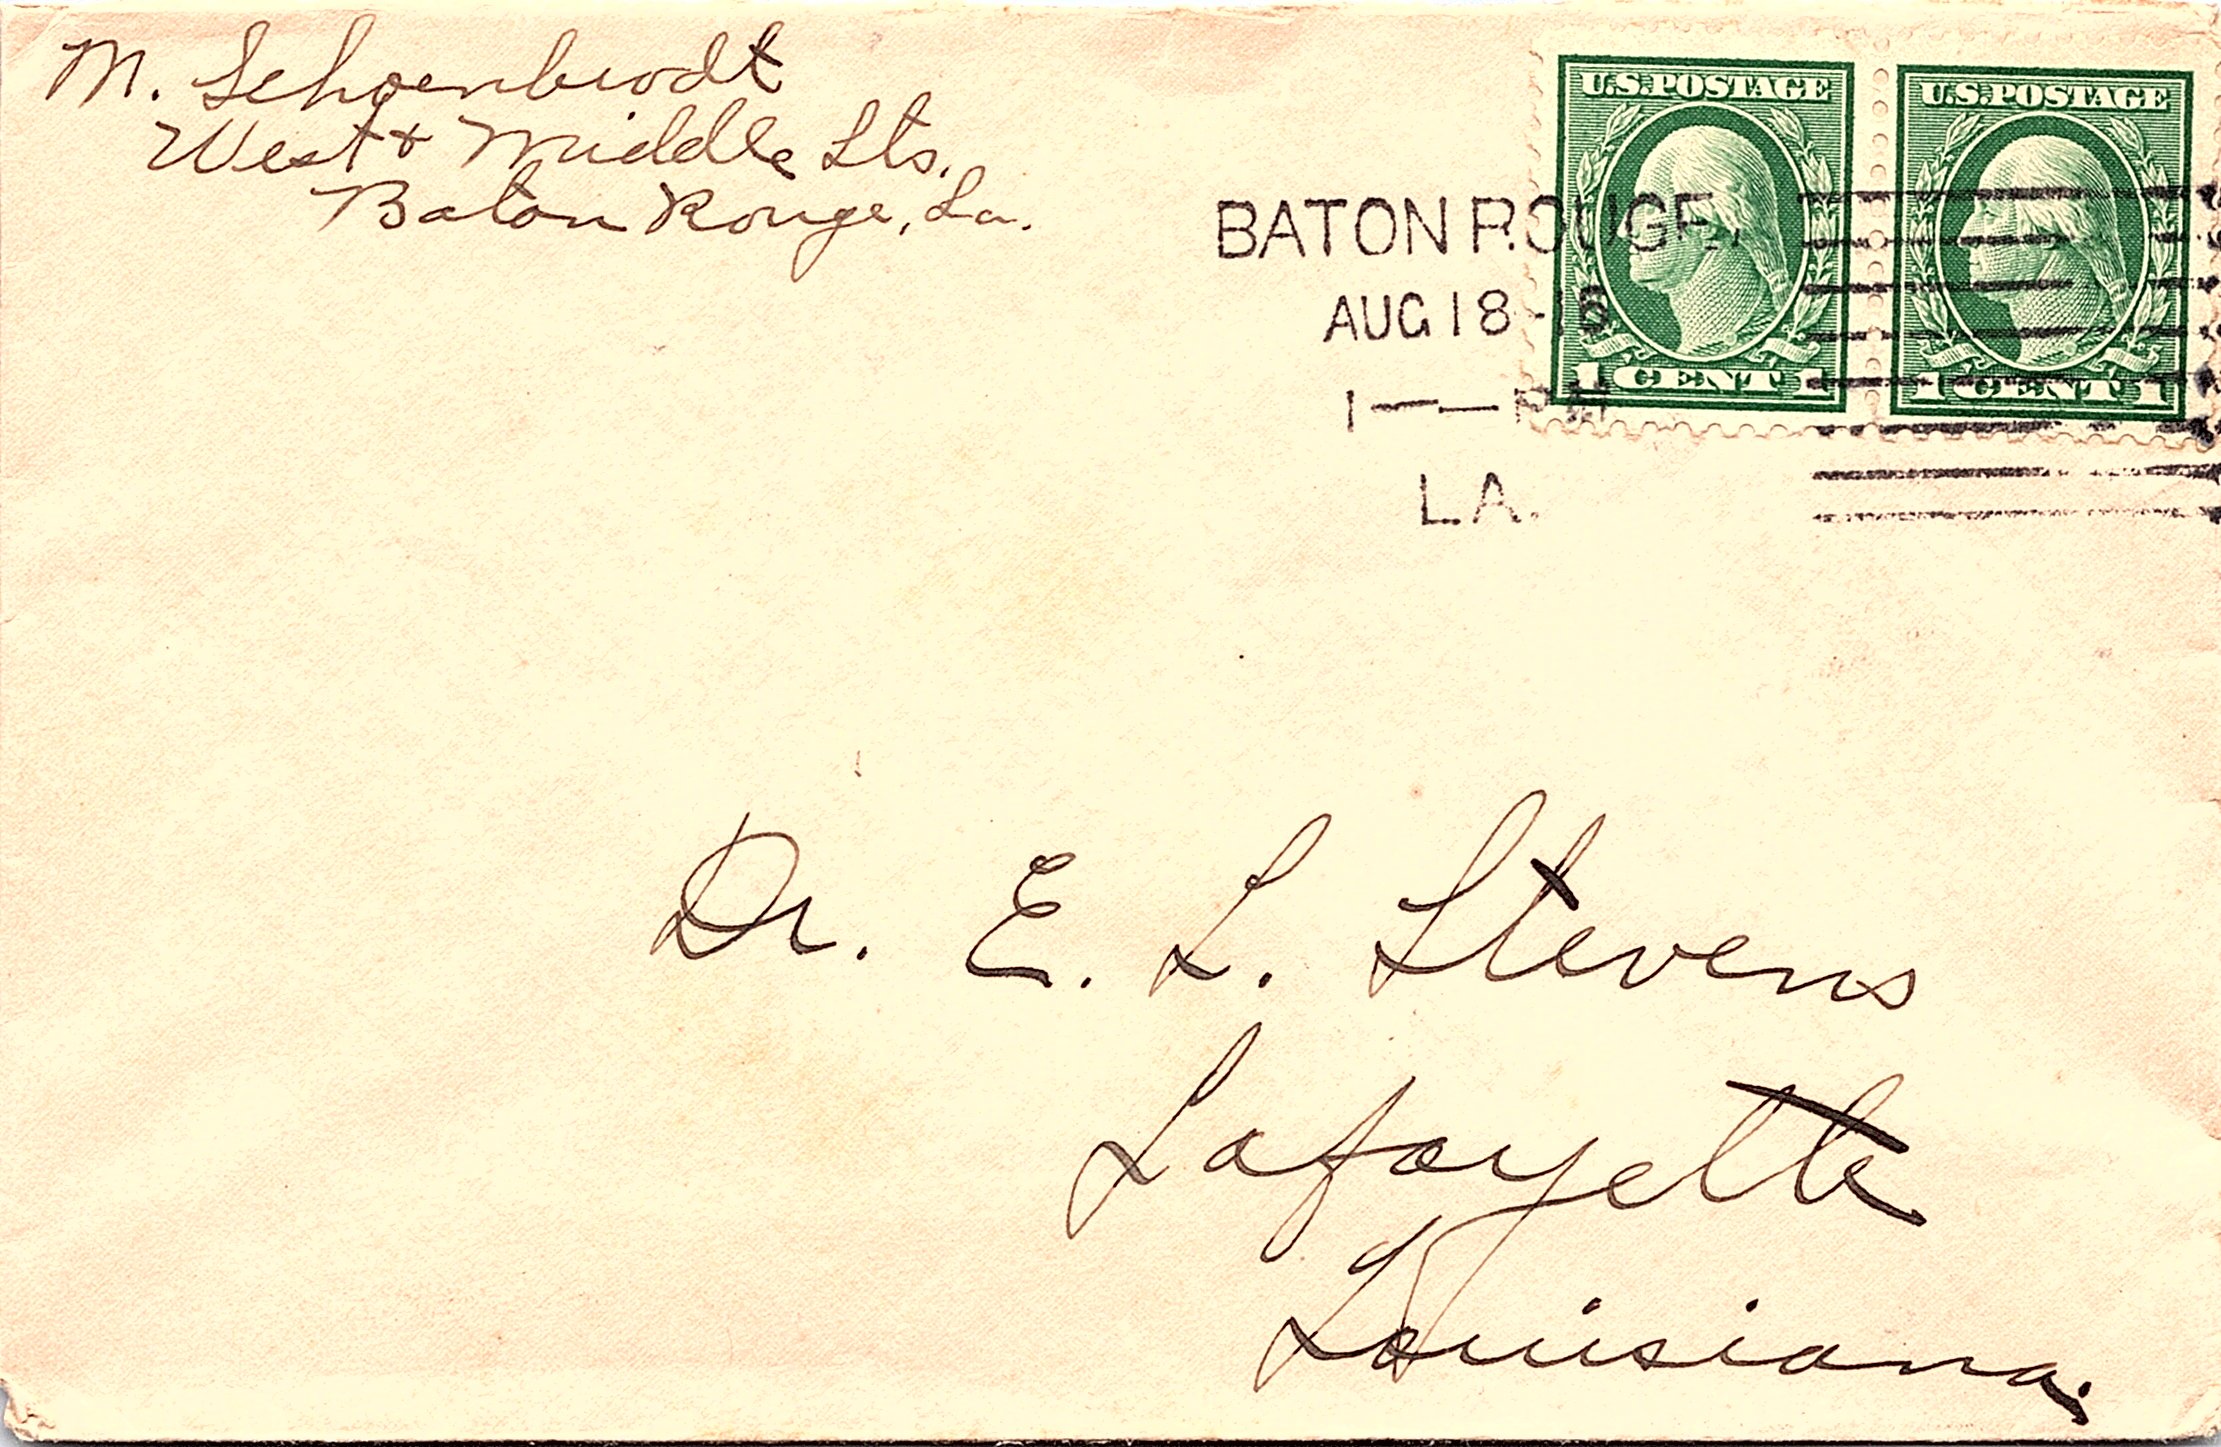 M. Schoenbrodt
West & Middle Sts.
Baton Rouge, La.
U.S. POSTAGE
1 CENT 1
U.S. POSTAGE
1 CENT 1
BATON ROUGE,
AUG 18
1 — PM
LA.
Dr. E. L. Stevens
Lafayette
Louisiana.